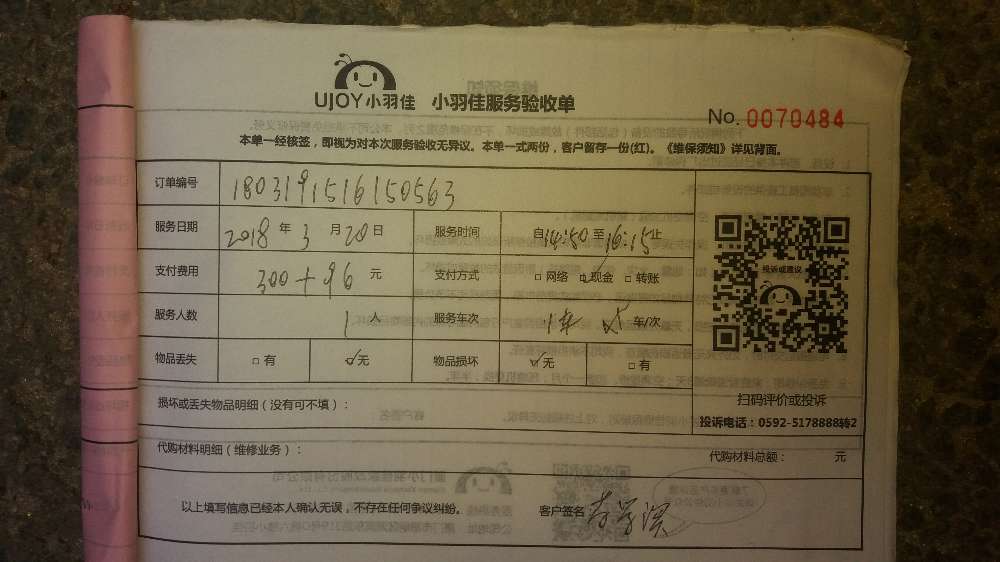 UJOY小羽佳 小羽佳服务验收单
No. 0070484
本单一经核签，即视为对本次服务验收无异议。本单一式两份，客户暂存一份(红)。《维保须知》详见背面。
订单编号 1803191516150563
服务日期 2018年3月20日 服务时间 自14:50至16:15止
支付费用 300+96元 支付方式 □网络 ☑现金 □转账
投诉或建议
服务人数 1人 服务车次 1车 车/次
物品丢失 □有 ☑无 物品损坏 ☑无 □有
扫码评价或投诉
损坏或丢失物品明细（没有可不填）：
投诉电话：0592-5178888转2
代购材料明细（维修业务）： 代购材料总额： 元
以上填写信息已经本人确认无误，不存在任何争议纠纷。 客户签名